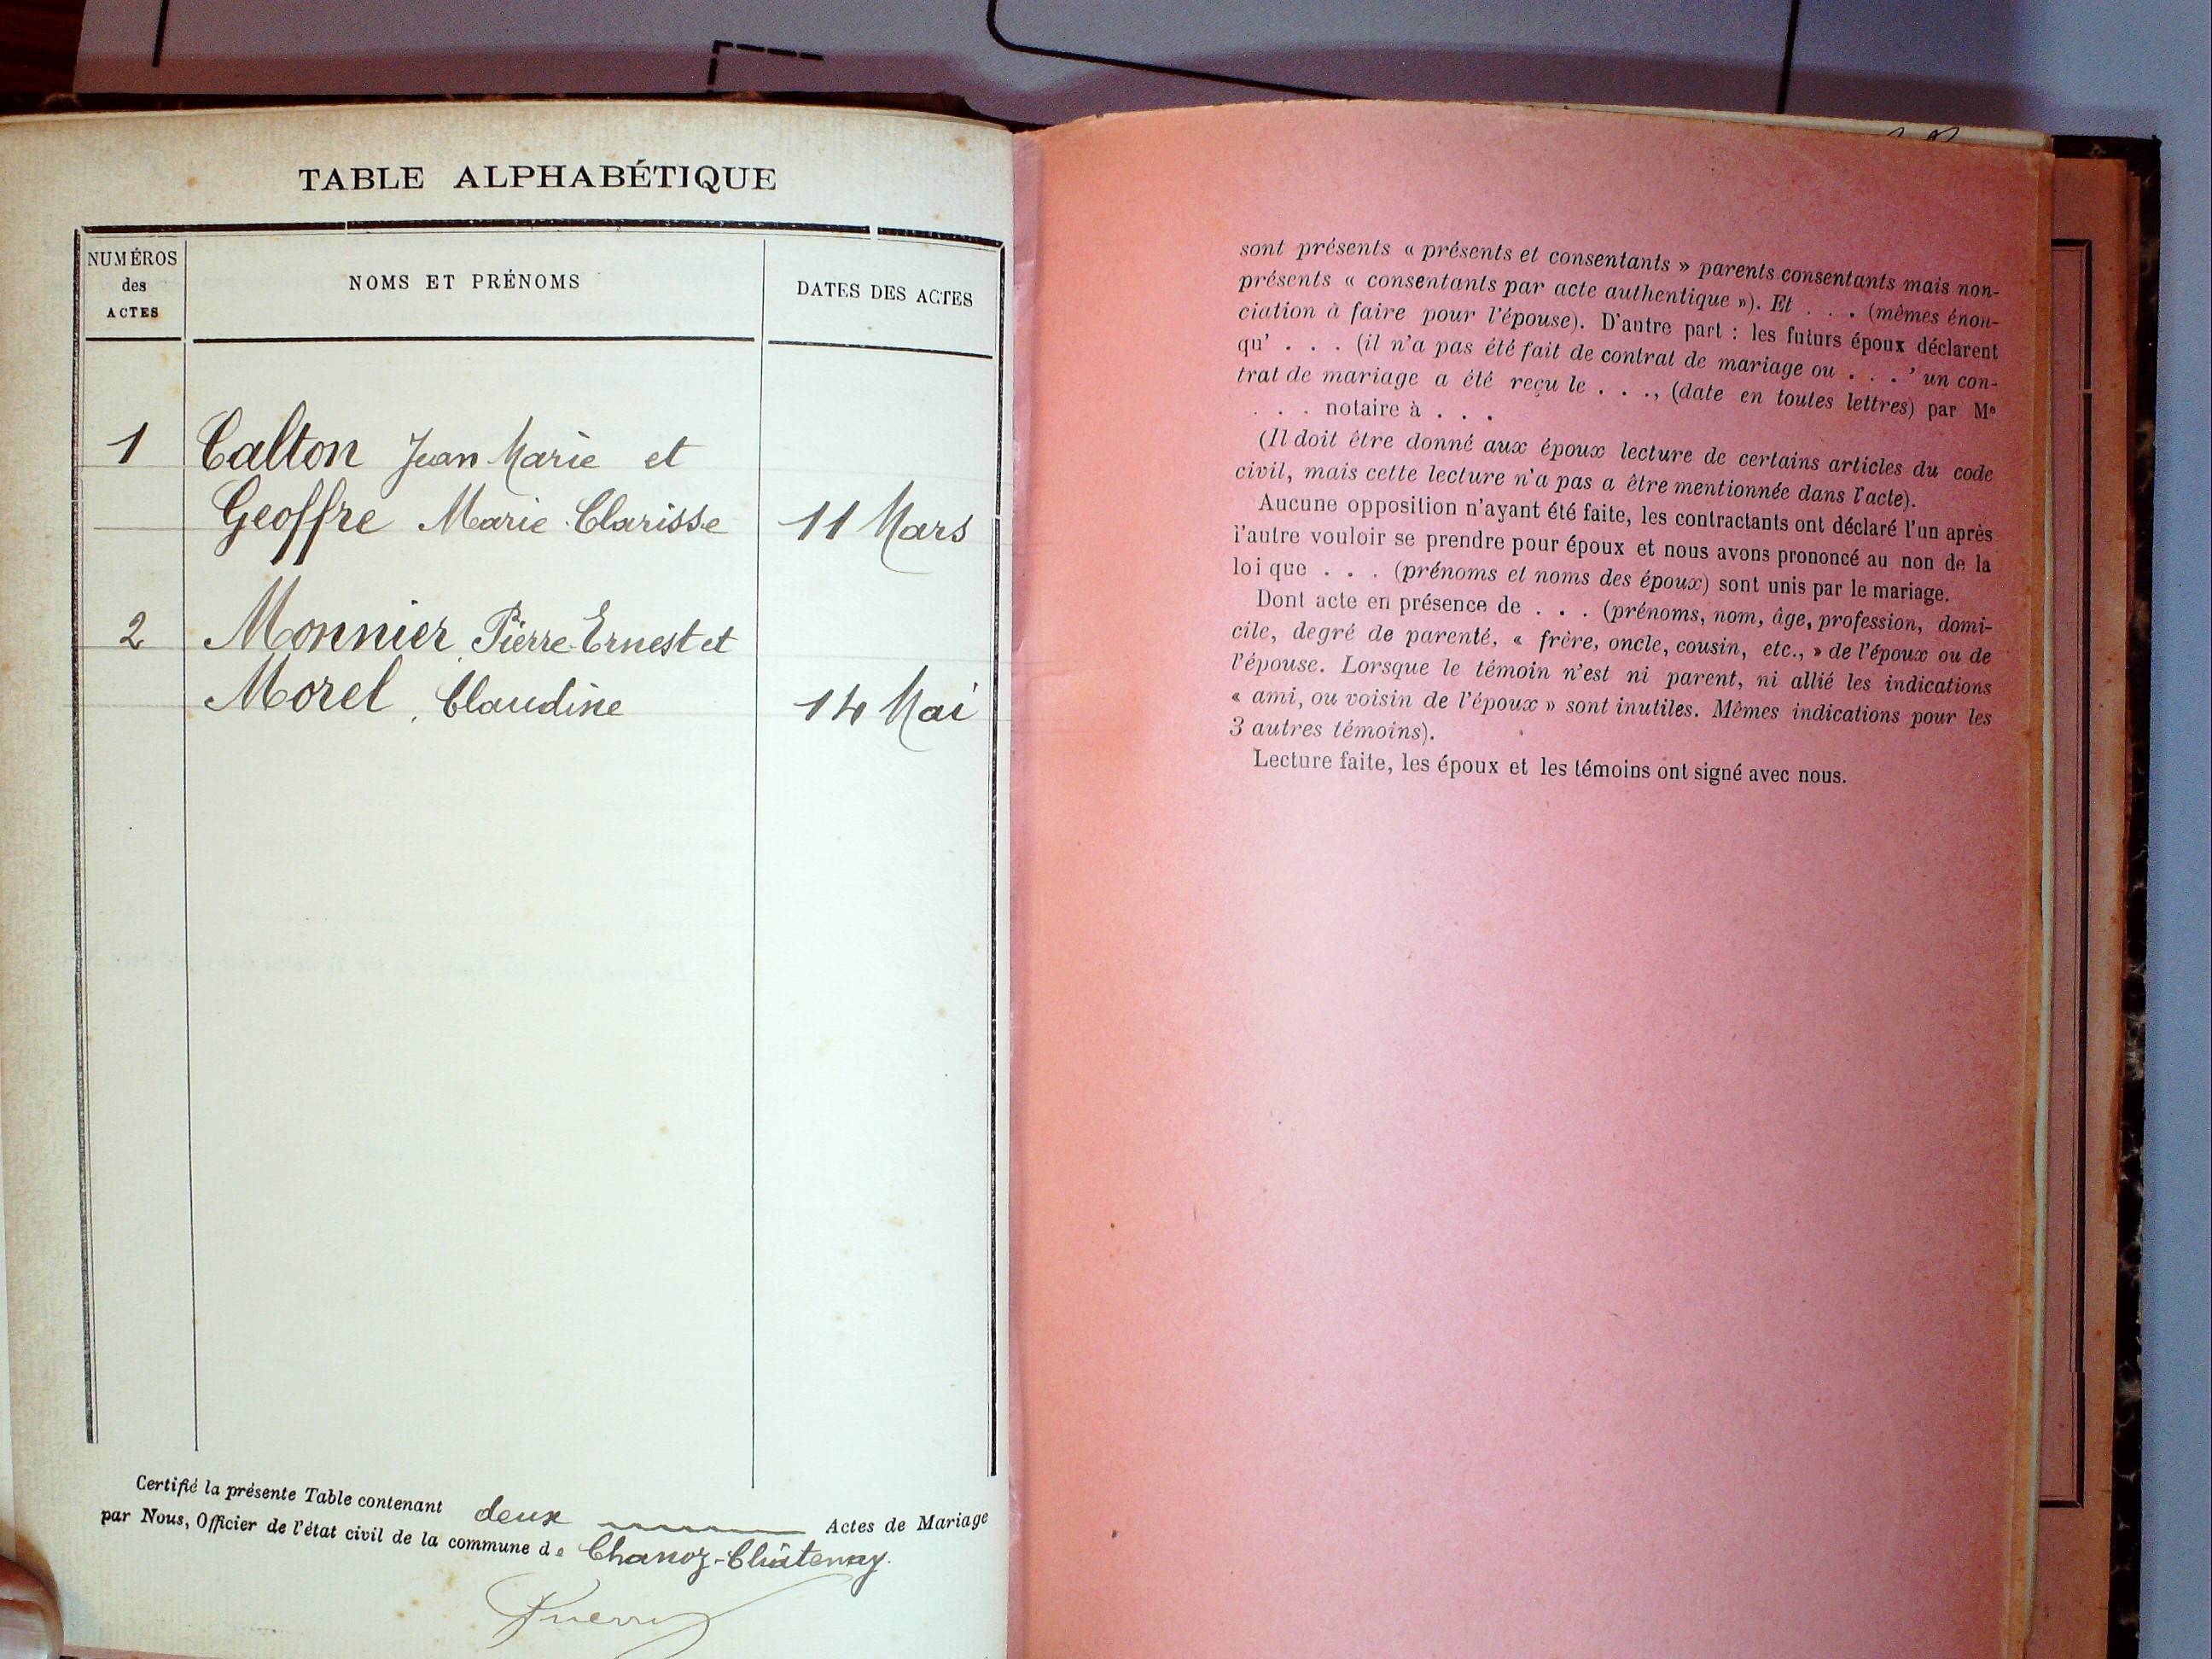 TABLE ALPHABÉTIQUE
NUMÉROS
des
ACTES
NOMS ET PRÉNOMS
DATES DES ACTES
1 Calton Jean Marie et
Geoffre Marie Clarisse 11 Mars
2 Monnier Pierre Ernest et
Morel Claudine 14 Mai
Certifié la présente Table contenant deux Actes de Mariage
par Nous, Officier de l'état civil de la commune de Chanoz-Châtenay.
sont présents « présents et consentants » parents consentants mais non-
présents « consentants par acte authentique »). Et . . . (mêmes énon-
ciation à faire pour l'épouse). D'autre part : les futurs époux déclarent
qu' . . . (il n'a pas été fait de contrat de mariage ou . . .' un con-
trat de mariage a été reçu le . . ., (date en toutes lettres) par Me
. . . notaire à . . .
(Il doit être donné aux époux lecture de certains articles du code
civil, mais cette lecture n'a pas a être mentionnée dans l'acte).
Aucune opposition n'ayant été faite, les contractants ont déclaré l'un après
l'autre vouloir se prendre pour époux et nous avons prononcé au non de la
loi que . . . (prénoms et noms des époux) sont unis par le mariage.
Dont acte en présence de . . . (prénoms, nom, âge, profession, domi-
cile, degré de parenté, « frère, oncle, cousin, etc., » de l'époux ou de
l'épouse. Lorsque le témoin n'est ni parent, ni allié les indications
« ami, ou voisin de l'époux » sont inutiles. Mêmes indications pour les
3 autres témoins).
Lecture faite, les époux et les témoins ont signé avec nous.